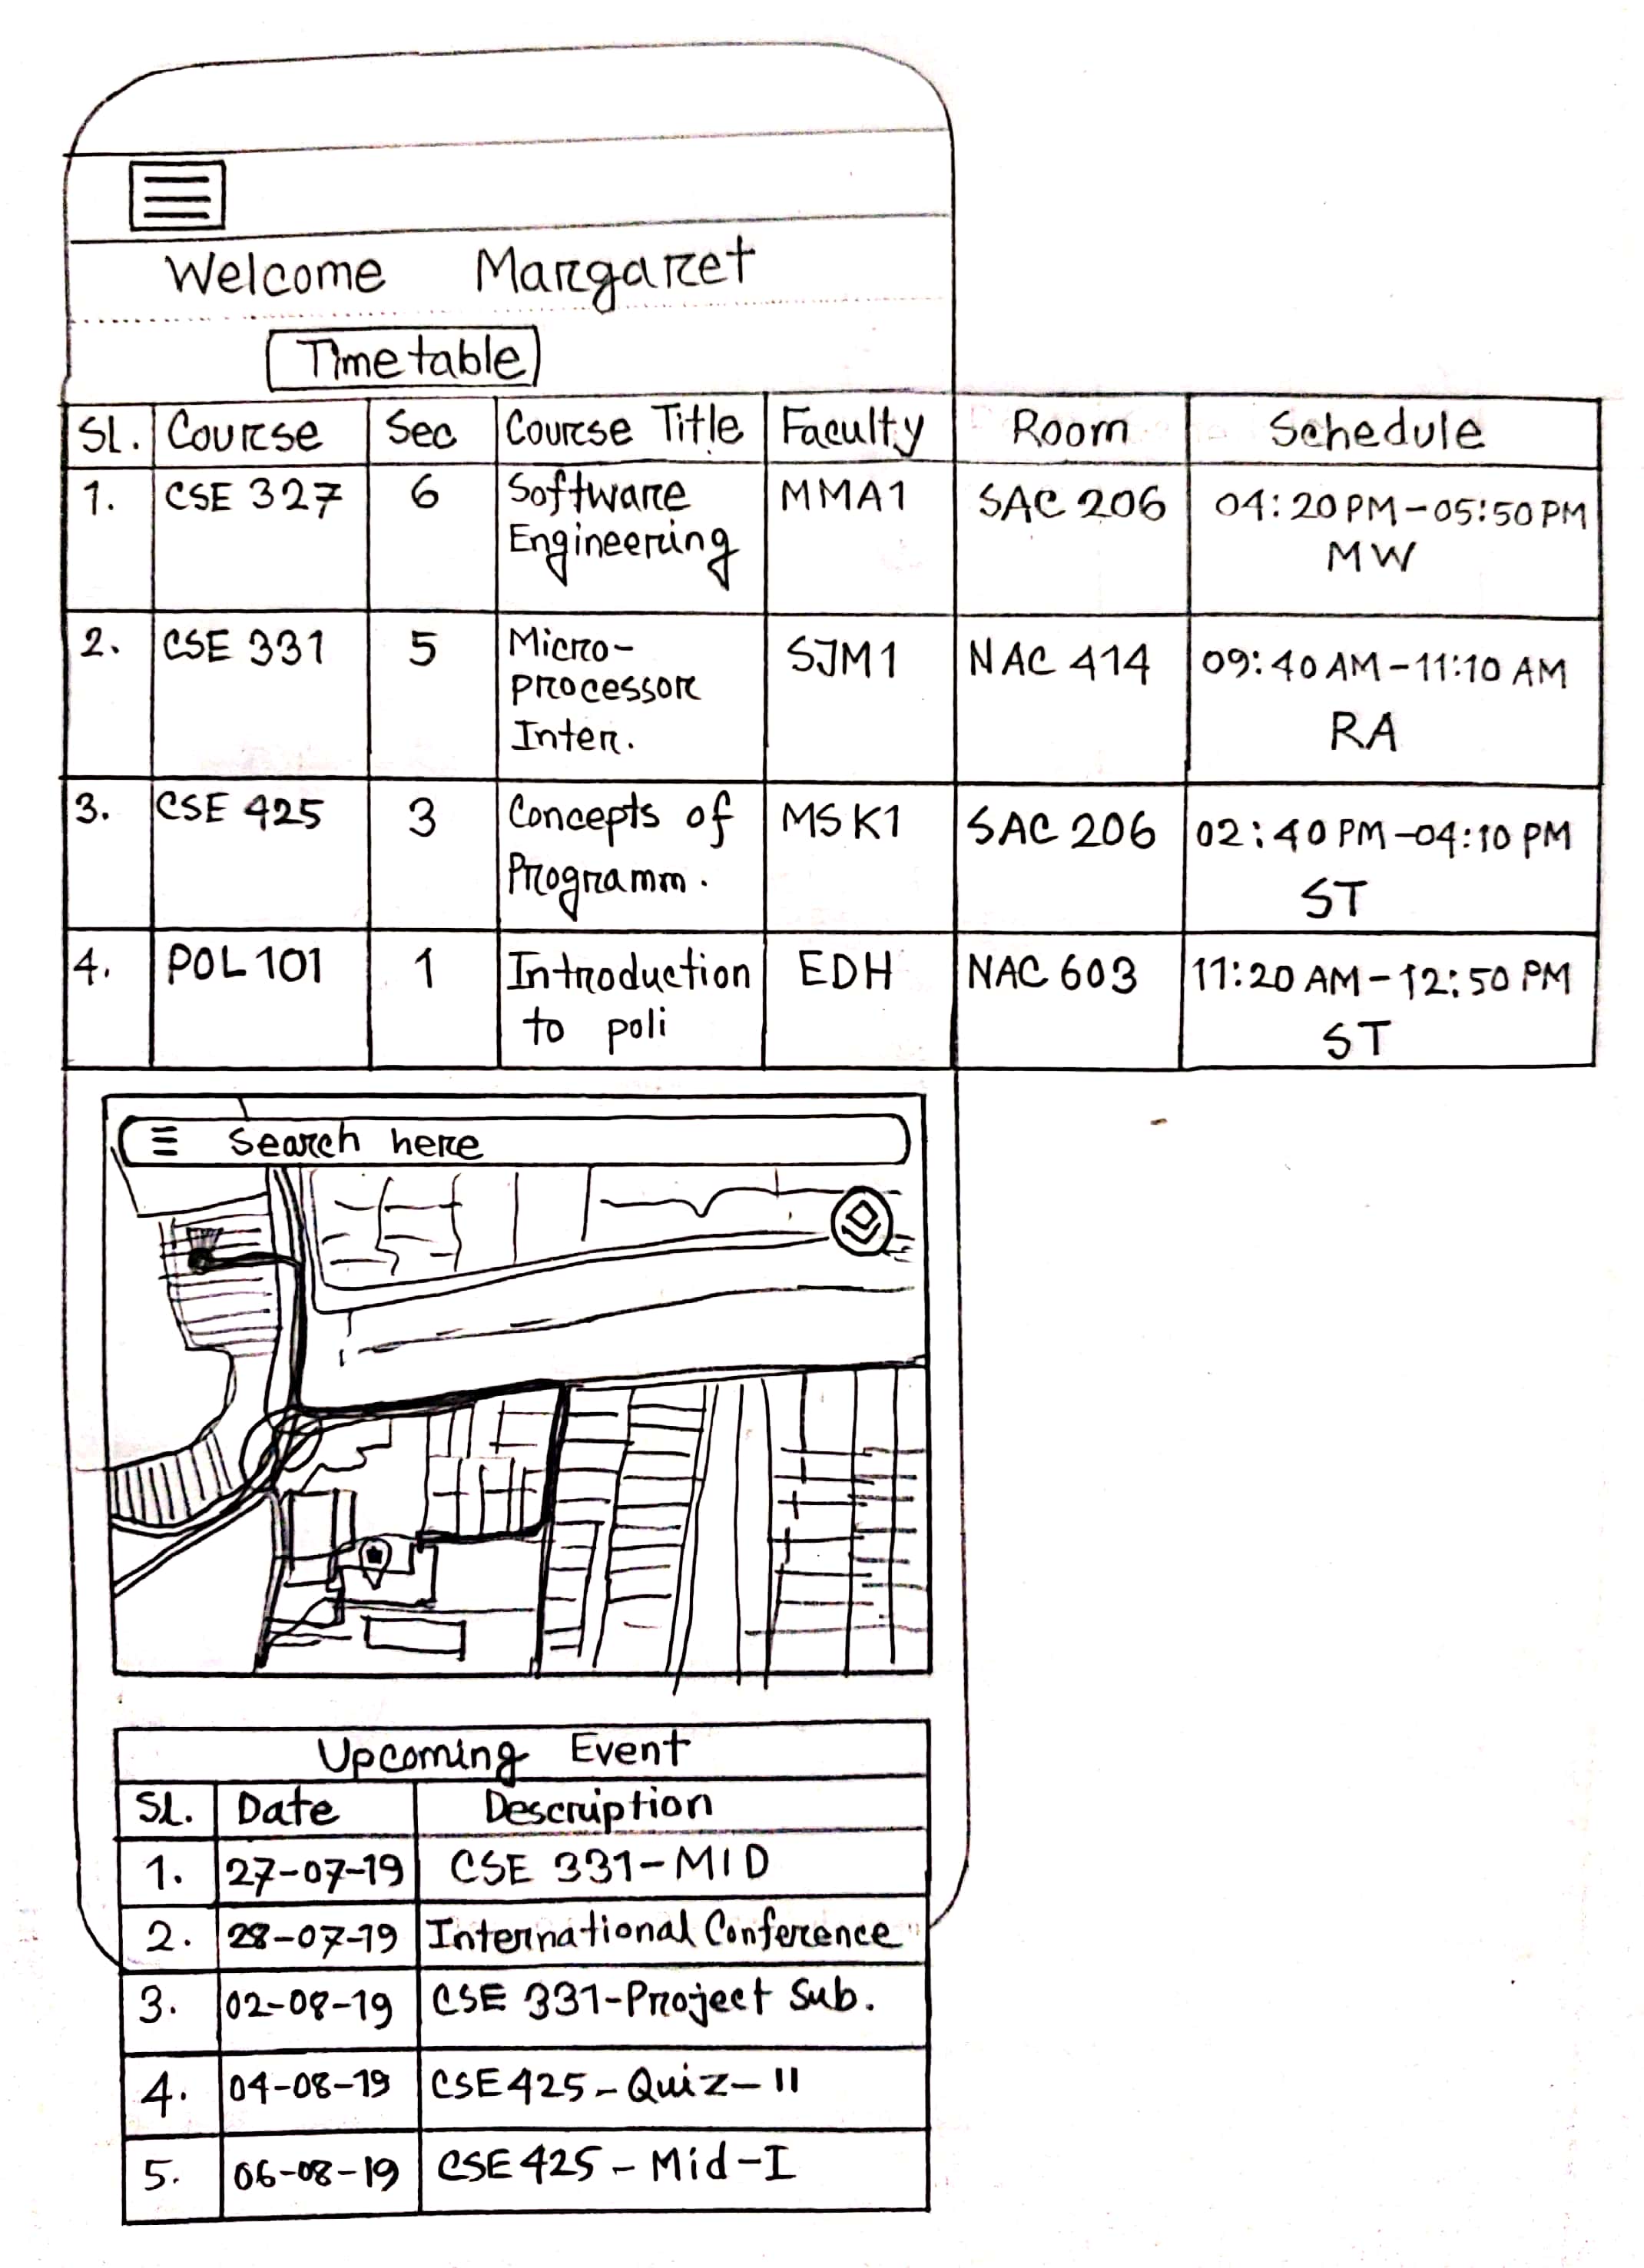 Welcome Margaret
Timetable
Sl. Course Sec Course Title Faculty Room Schedule
1. CSE 327 6 Software Engineering MMA1 SAC 206 04:20 PM-05:50 PM MW
2. CSE 331 5 Micro-processor Inter. SJM1 NAC 414 09:40 AM-11:10 AM RA
3. CSE 425 3 Concepts of Programm. MSK1 SAC 206 02:40 PM-04:10 PM ST
4. POL 101 1 Introduction to poli EDH NAC 603 11:20 AM-12:50 PM ST
Search here
Upcoming Event
Sl. Date Description
1. 27-07-19 CSE 331-MID
2. 28-07-19 International Conference
3. 02-08-19 CSE 331-Project Sub.
4. 04-08-19 CSE 425-Quiz-II
5. 06-08-19 CSE 425-Mid-I